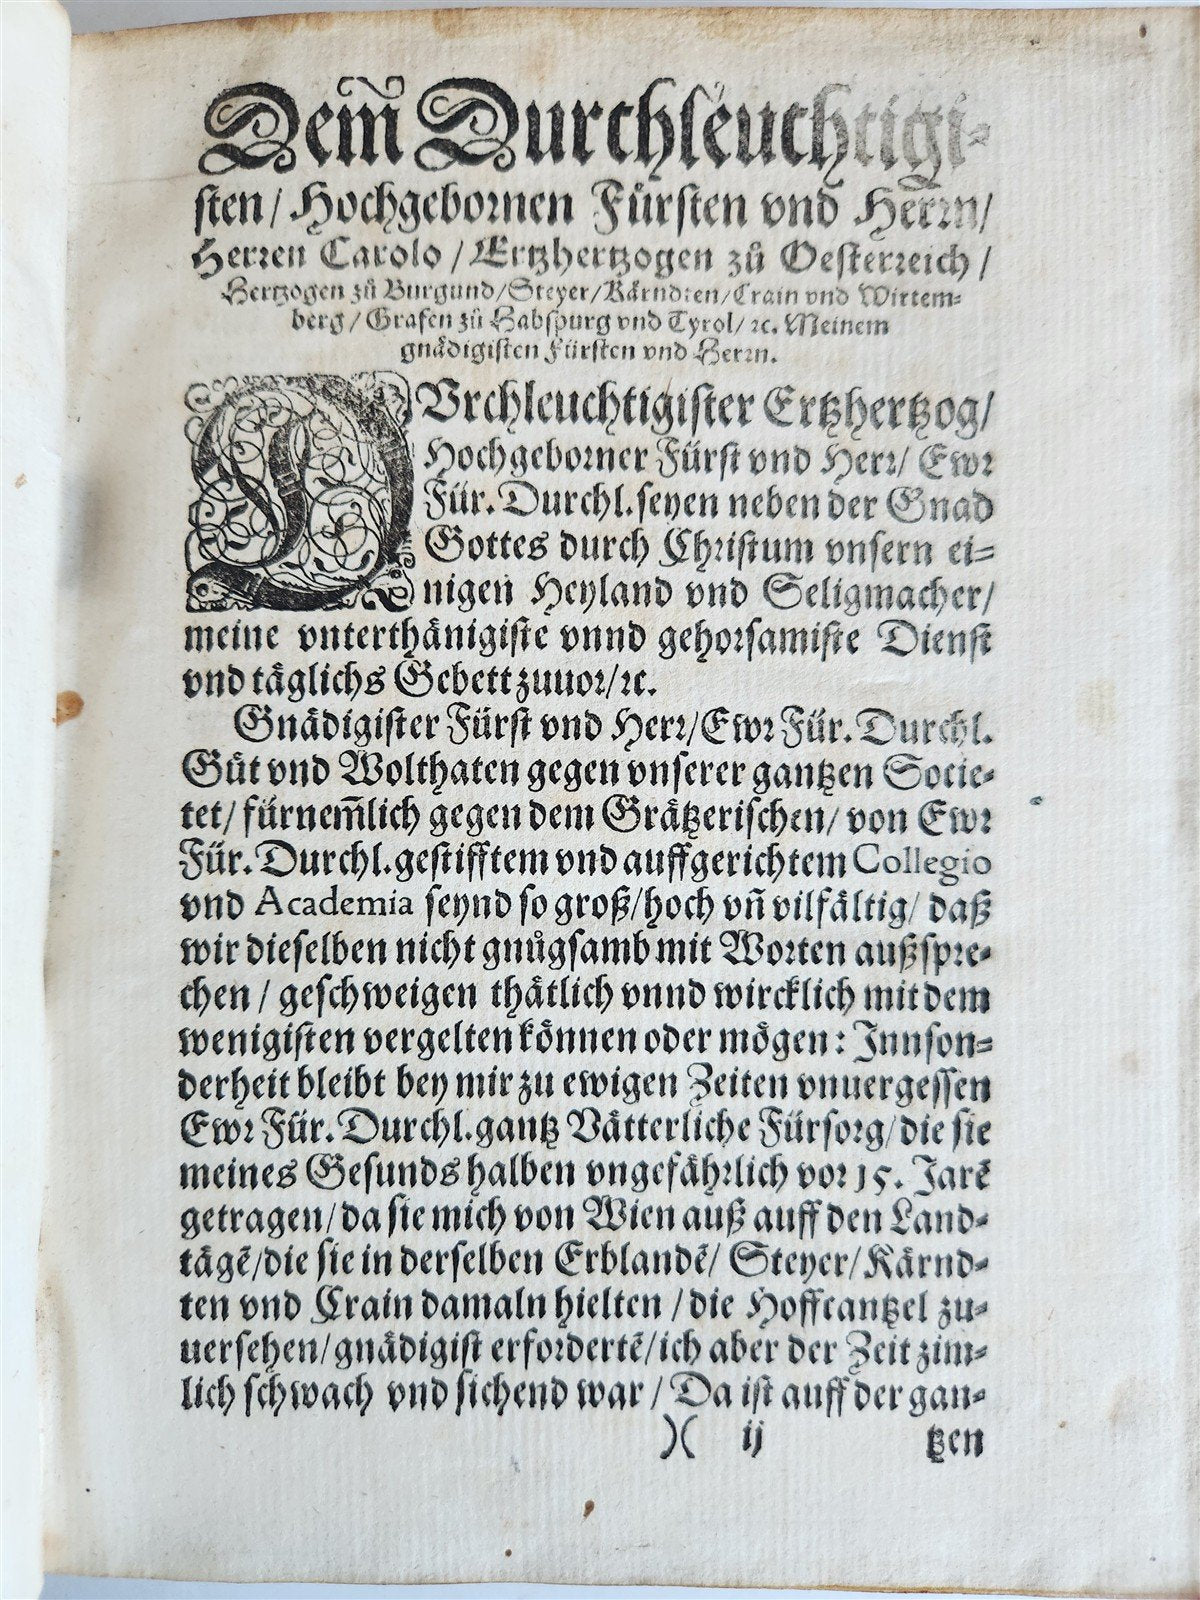 Dem̃ Durchleuchtigi-
sten/ Hochgebornen Fürsten vnd Herrn/
Herren Carolo/ Ertzhertzogen zů Oesterreich/
Hertzogen zů Burgund/Steyer/Kärndten/Crain vnd Wirtem-
berg/ Grafen zů Habspurg vnd Tyrol/ ꝛc. Meinem
gnädigisten Fürsten vnd Herrn.
DVrchleuchtigister Ertzhertzog/
Hochgeborner Fürst vnd Herr/ Ewr
Für. Durchl. seyen neben der Gnad
Gottes durch Christum vnsern ei-
nigen Heyland vnd Seligmacher/
meine vnterthänigiste vnnd gehorsamiste Dienst
vnd täglichs Gebett zuuor/ꝛc.
Gnädigister Fürst vnd Herr/Ewr Für. Durchl.
Güt vnd Wolthaten gegen vnserer gantzen Socie-
tet/ fürnem̃lich gegen dem Grätzerischen/ von Ewr
Für. Durchl. gestifftem vnd auffgerichtem Collegio
vnd Academia seynd so groß/hoch vñ vilfältig/ daß
wir dieselben nicht gnůgsamb mit Worten außspre-
chen/ geschweigen thätlich vnnd wircklich mit dem
wenigisten vergelten können oder mögen: Innson-
derheit bleibt bey mir zu ewigen Zeiten vnuergessen
Ewr Für. Durchl. gantz Vätterliche Fürsorg/die sie
meines Gesunds halben vngefährlich vor 15. Jarẽ
getragen/da sie mich von Wien auß auff den Land-
tägẽ/die sie in derselben Erblandẽ/ Steyer/Kärnd-
ten vnd Crain damaln hielten/die Hoffcantzel zu-
uersehen/gnädigist erfordertẽ/ich aber der Zeit zim-
lich schwach vnd sichend war/ Da ist auff der gan-
)( ij tzen